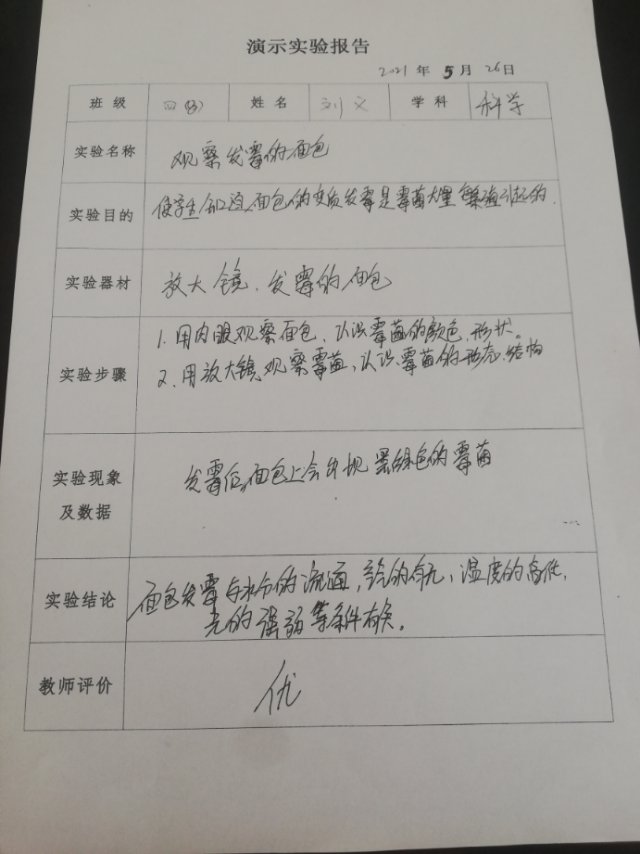 演示实验报告
2021 年 5 月 26 日
班级 四(3) 姓名 刘文 学科 科学
实验名称 观察发霉的面包
实验目的 使学生知道面包的变质发霉是霉菌大量繁殖引起的.
实验器材 放大镜、发霉的面包
1.用肉眼观察面包,认识霉菌的颜色,形状。
实验步骤 2.用放大镜观察霉菌,认识霉菌的形态、结构
实验现象 发霉后,面包上会出现黑绿色的霉菌
及数据
实验结论 面包发霉与水分的流通,的有无,温度的高低,
光的强弱等条件有关。
教师评价 优